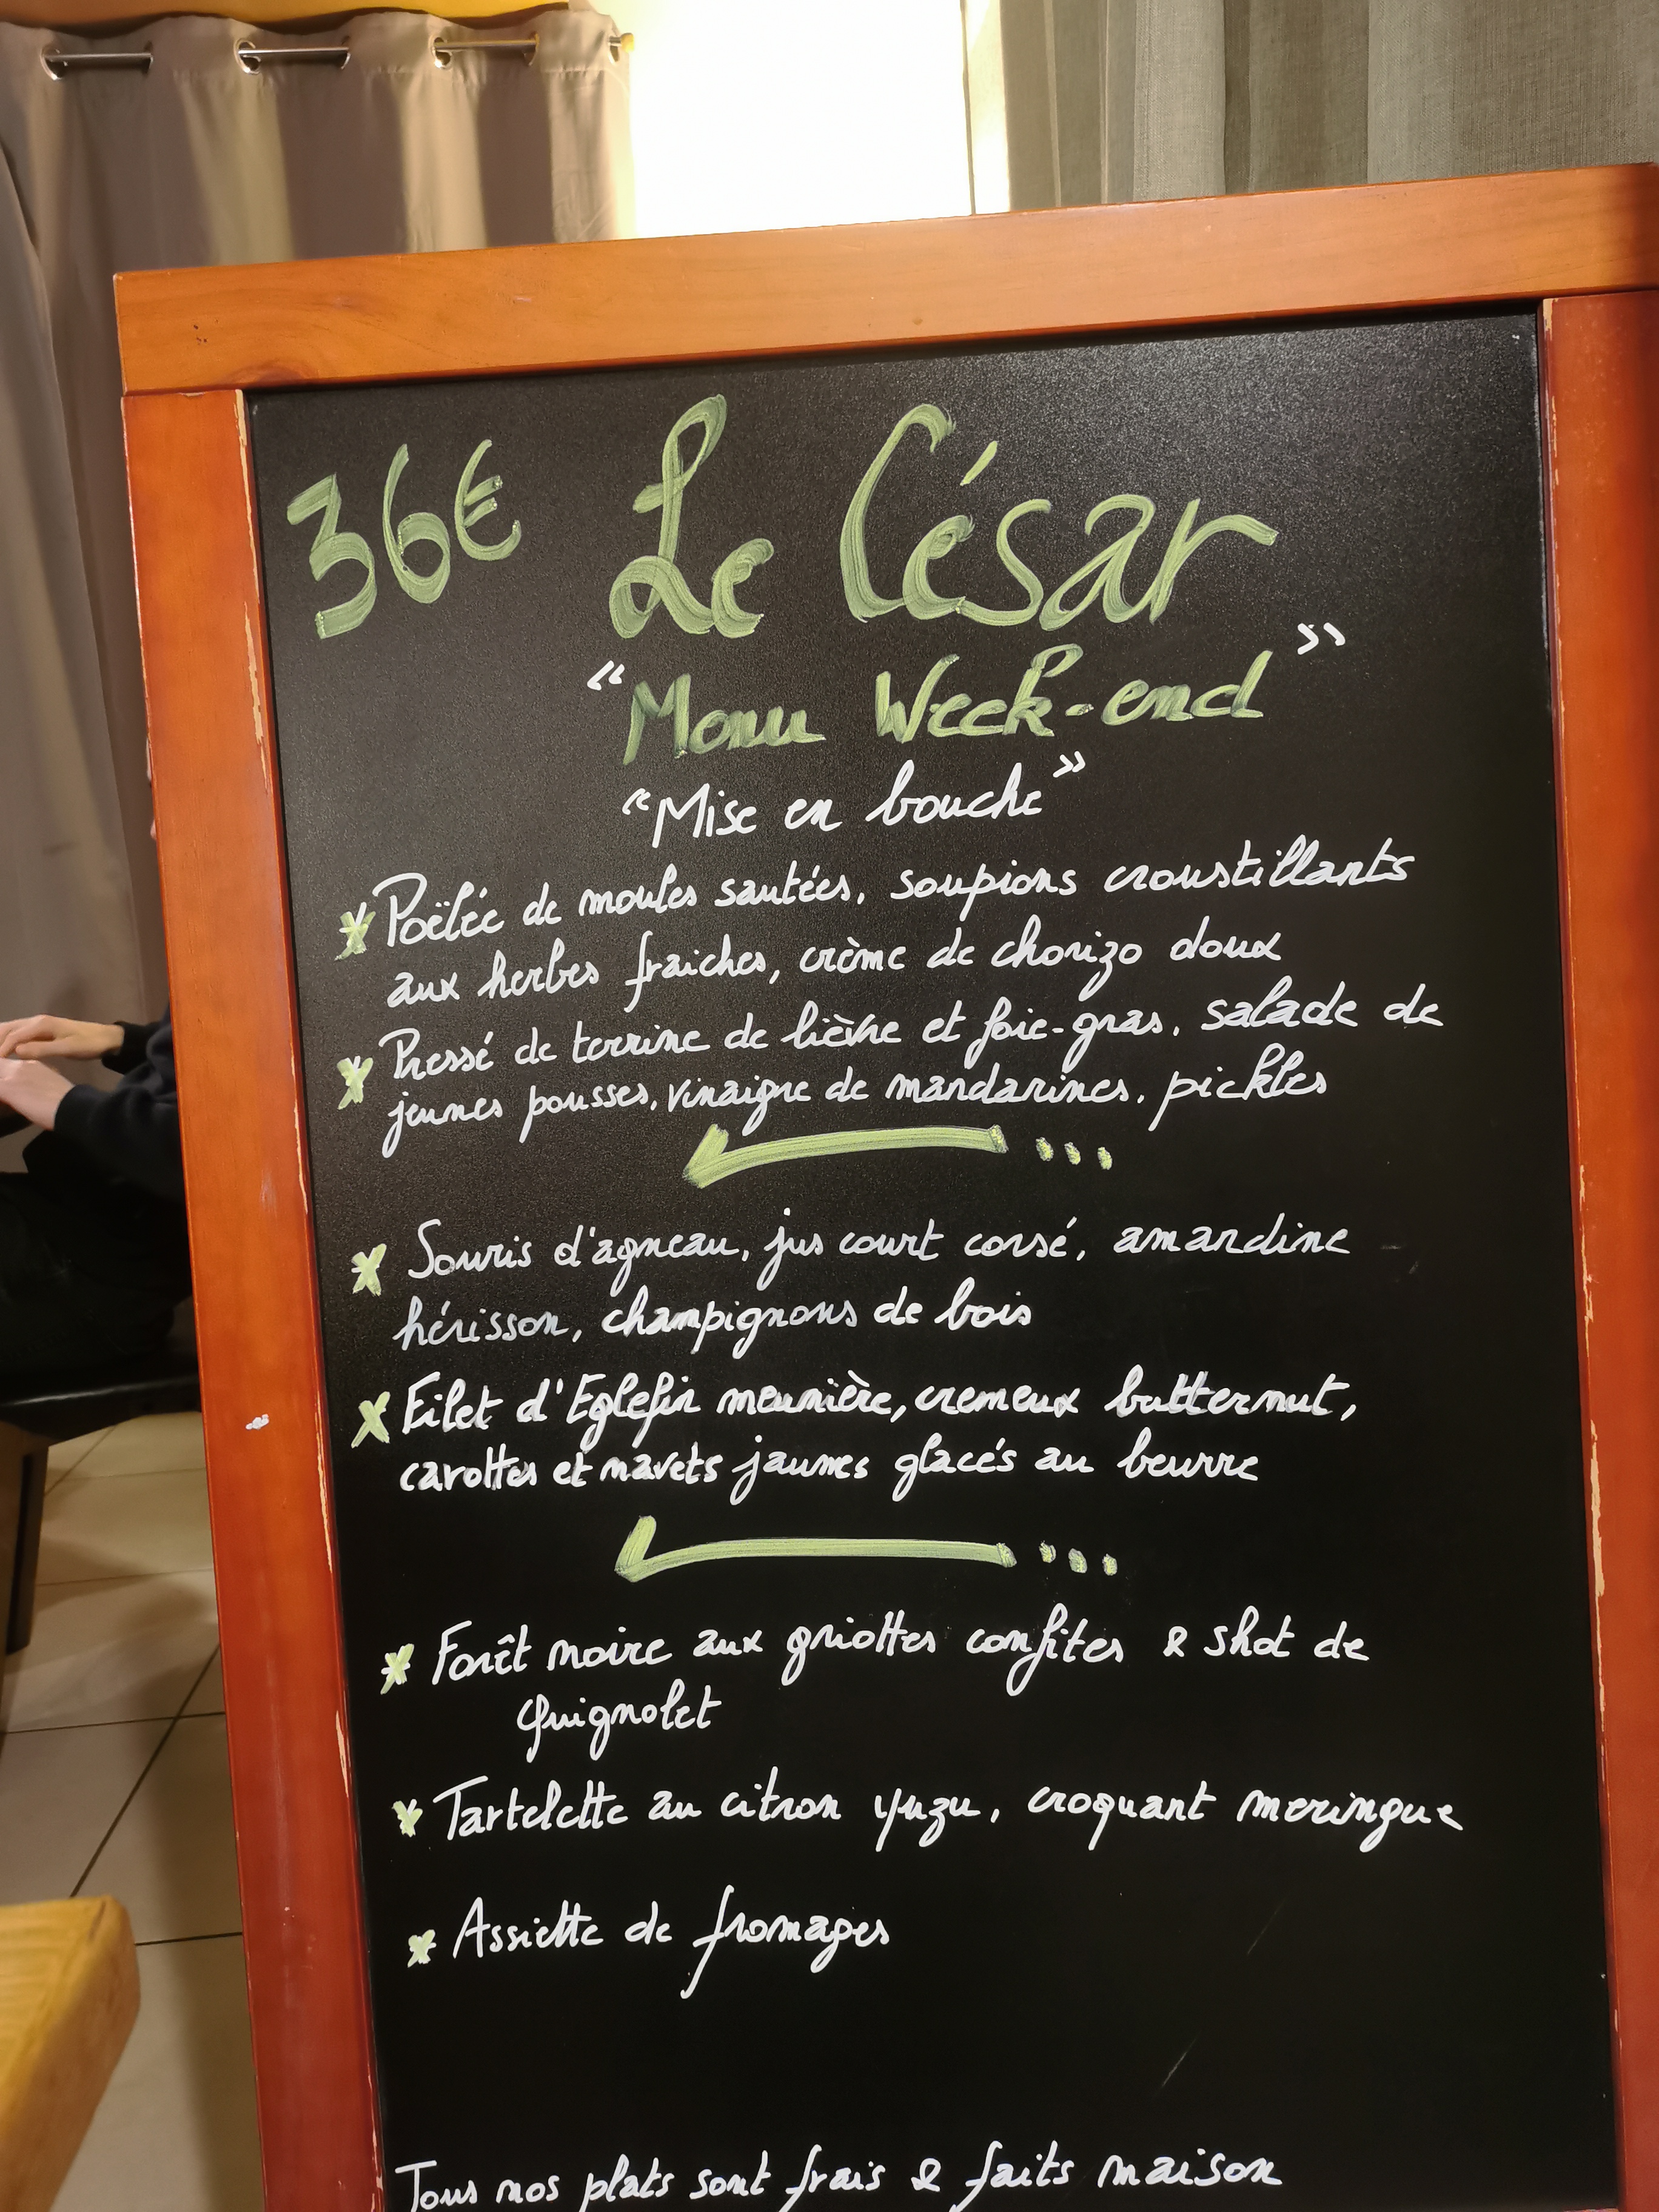 36€ Le César
"Menu Week-end"
"Mise en bouche"
* Poëlée de moules sautées, soupions croustillants
aux herbes fraiches, crème de chorizo doux
* Pressé de terrine de lièvre et foie-gras, salade de
jeunes pousses, vinaigre de mandarines, pickles
* Souris d'agneau, jus court corsé, amandine
hérisson, champignons de bois
* Filet d'Eglefin meunière, cremeux butternut,
carottes et navets jaunes glacés au beurre
* Forêt noire aux griottes confites & shot de
Guignolet
* Tartelette au citron yuzu, croquant meringue
* Assiette de fromages
Tous nos plats sont frais & faits maison